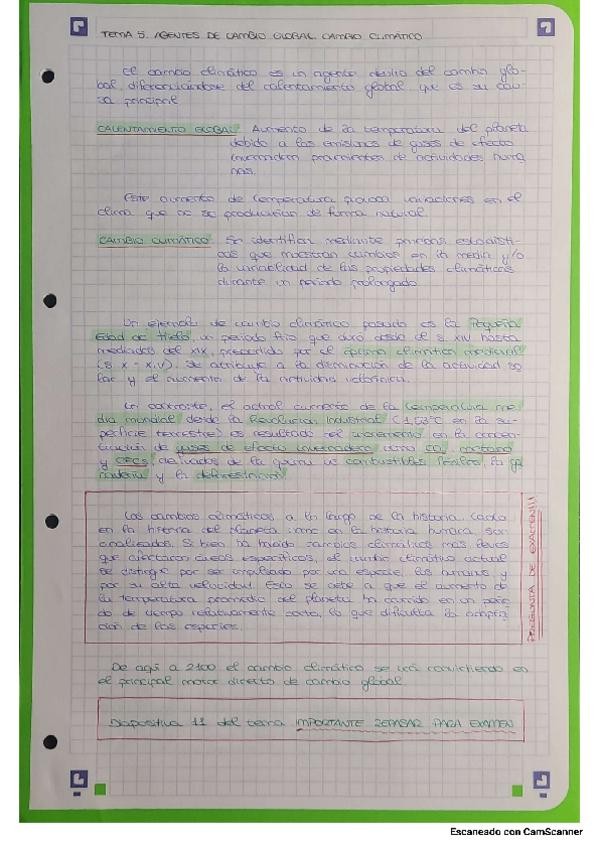 TEMA 5. AGENTES DE CAMBIO GLOBAL. CAMBIO CLIMÁTICO
El cambio climático es un agente dentro del cambio glo-
bal, diferenciándose del calentamiento global, que es su cau-
sa principal
CALENTAMIENTO GLOBAL Aumento de la temperatura del planeta
debido a las emisiones de gases de efecto
invernadero provenientes de actividades huma
nas.
Este aumento de temperatura provoca variaciones en el
clima que no se producirían de forma natural.
CAMBIO CLIMÁTICO Se identifica mediante pruebas estadísti-
cas que muestran cambios en la media y/o
la variabilidad de las propiedades climáticas
durante un período prolongado
Un ejemplo de cambio climático pasado es la Pequeña
Edad de Hielo, un período frío que duró desde el s XIV hasta
mediados del XIX, precedido por el óptimo climático medieval
(s X - XIV). Se atribuye a la disminución de la actividad so
lar y el aumento de la actividad volcánica.
En contraste, el actual aumento de la temperatura me
dia mundial desde la Revolución Industrial (1,53°C en la su-
perficie terrestre) es resultado del incremento en la concen-
tración de gases de efecto invernadero como CO2, metano
y CFCs, derivados de la quema de combustibles fósiles, la ga
nadería y la deforestación
Los cambios climáticos a lo largo de la historia, tanto
en la historia del planeta como en la historia humana, son
analizados. Si bien ha habido cambios climáticos más leves
que afectaron áreas específicas, el cambio climático actual
se distingue por ser impulsado por una especie, los humanos, y
por su alta velocidad. Esto se debe a que el aumento de
la temperatura promedio del planeta ha ocurrido en un perío
do de tiempo relativamente corto, lo que dificulta la adapta
ción de las especies.
PREGUNTA DE EXAMEN!!!
De aquí a 2100 el cambio climático se irá convirtiendo en
el principal motor directo de cambio global
Diapositiva 11 del tema IMPORTANTE REPASAR PARA EXAMEN
Escaneado con CamScanner